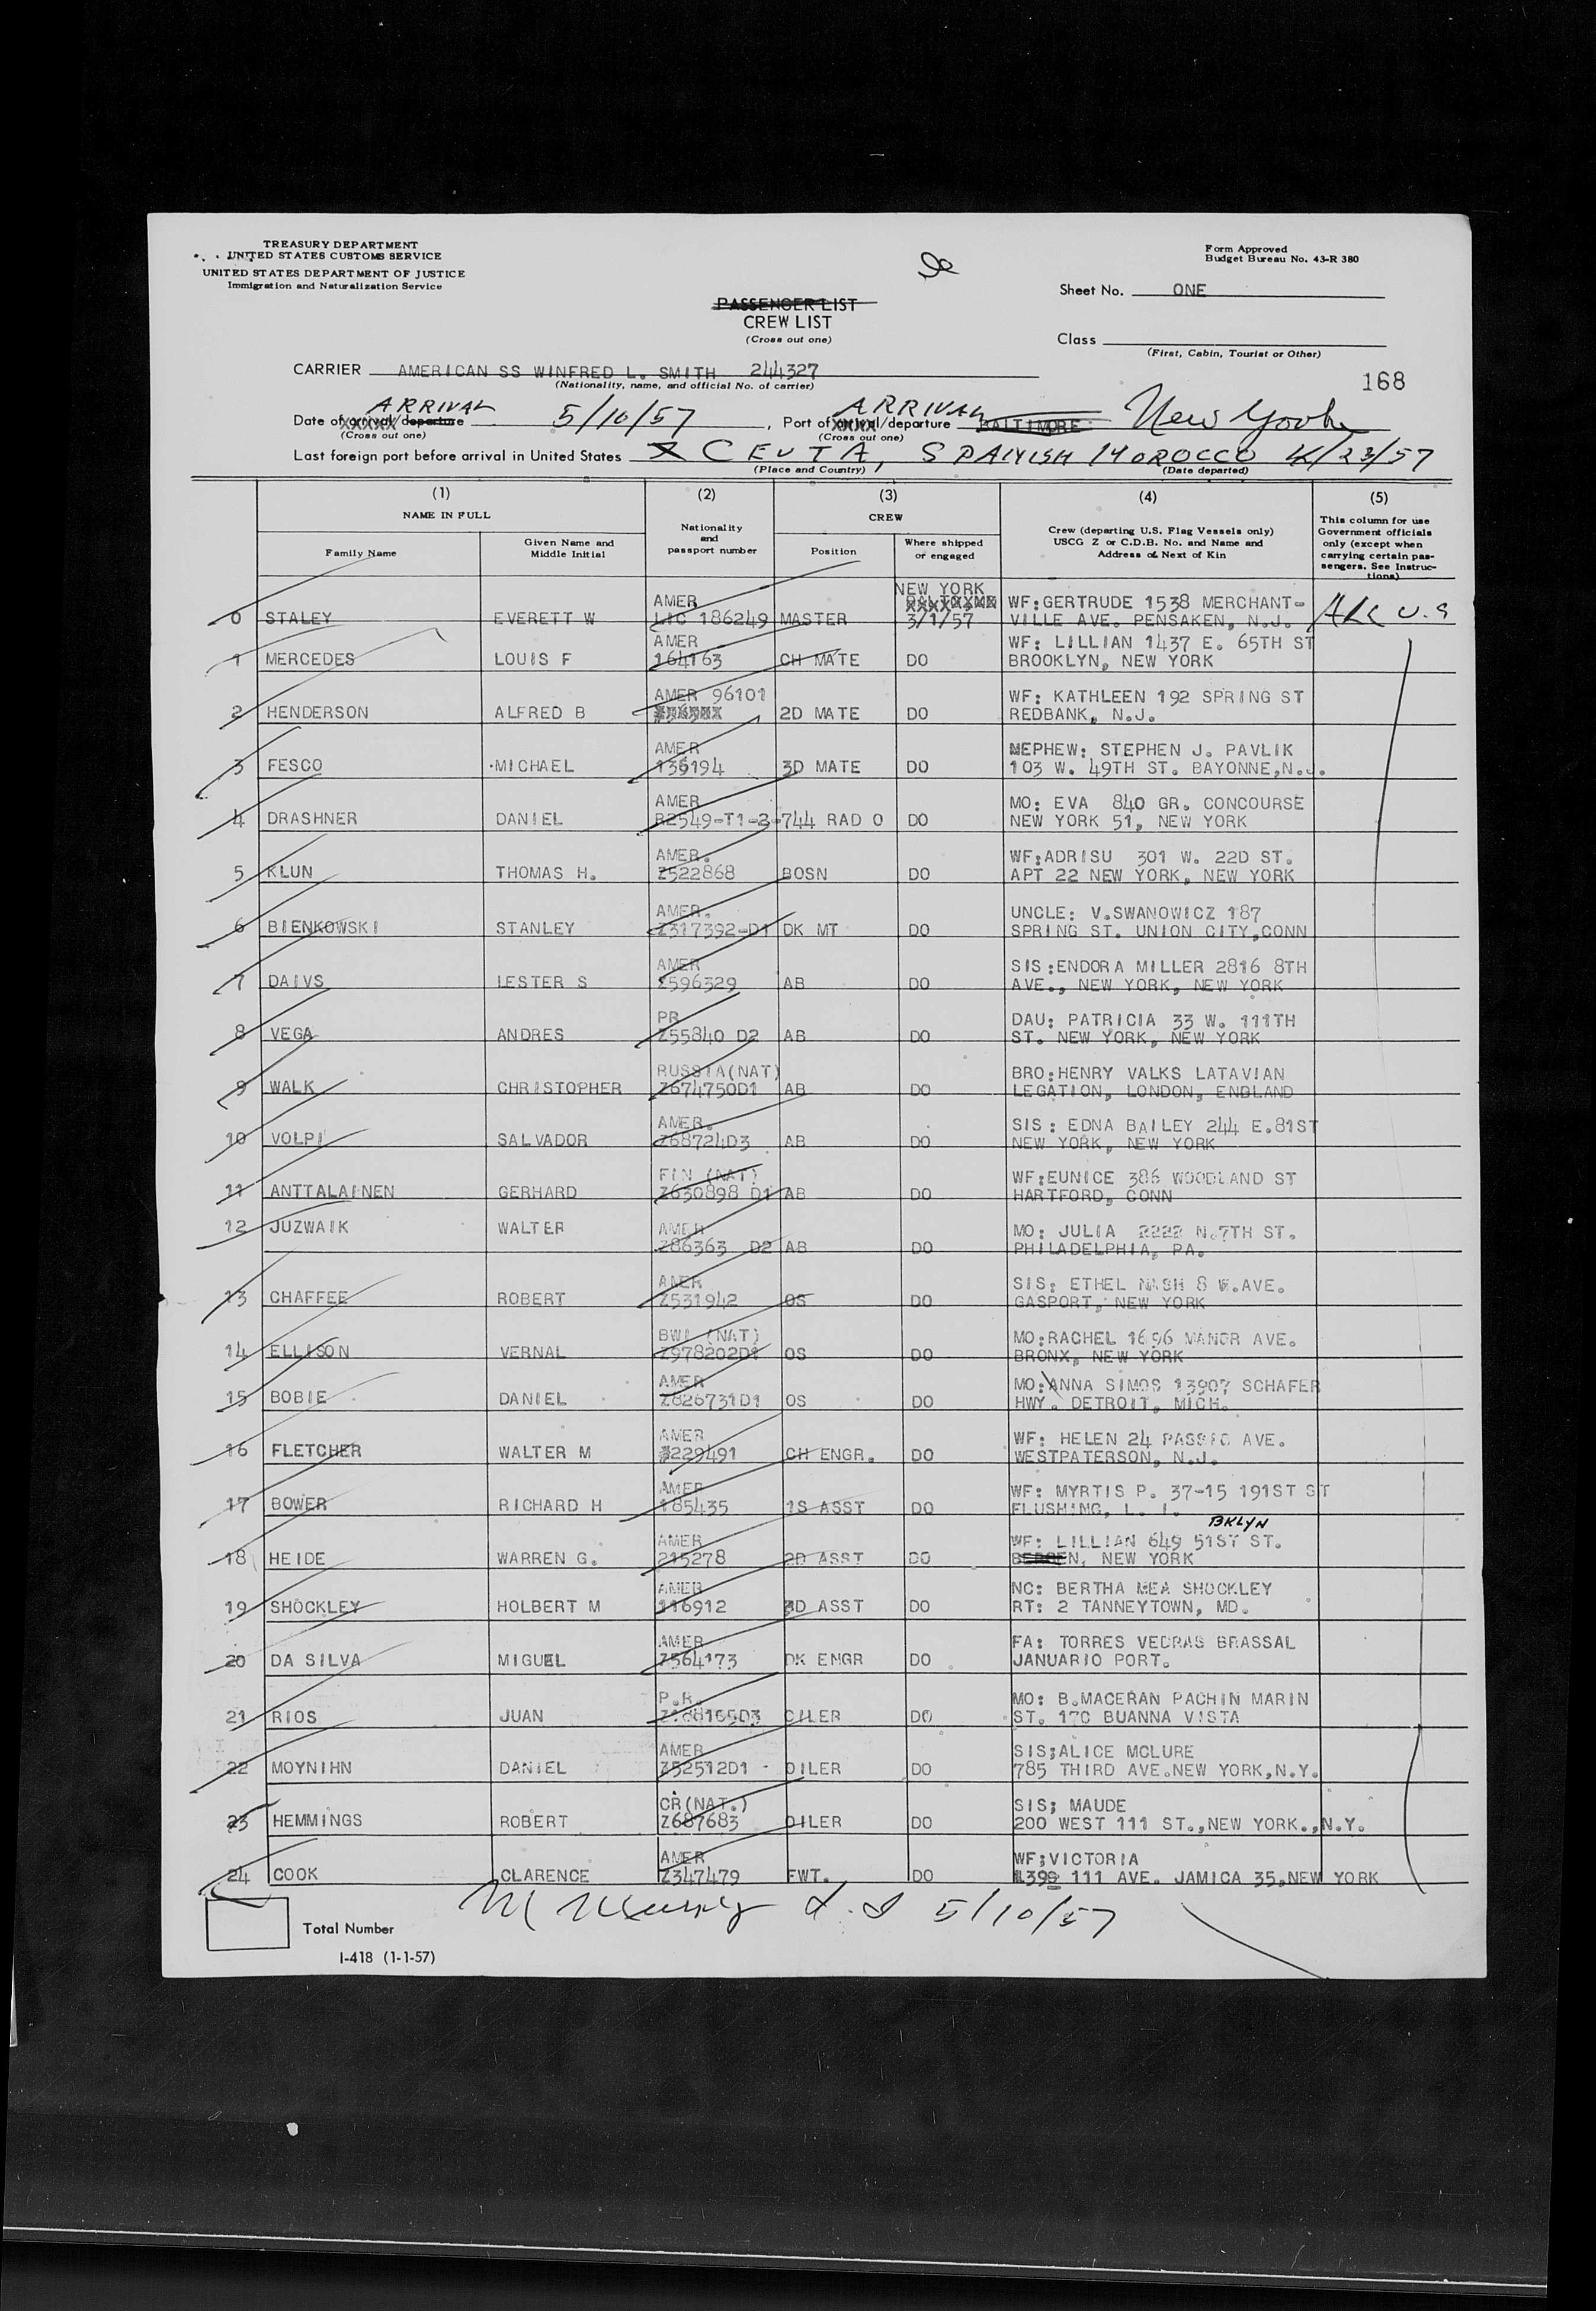 TREASURY DEPARTMENT
UNITED STATES CUSTOMS SERVICE
UNITED STATES DEPARTMENT OF JUSTICE
Immigration and Naturalization Service
Form Approved
Budget Bureau No. 43-R 380
Sheet No. ONE
PASSENGER LIST
CREW LIST
(Cross out one)
Class
(First, Cabin, Tourist or Other)
CARRIER AMERICAN SS WINFRED L. SMITH 244327
(Nationality, name, and official No. of carrier)
168
ARRIVAL ARRIVAL
Date of arrival/departure 5/10/57, Port of arrival/departure BALTIMORE New York
(Cross out one) (Cross out one)
Last foreign port before arrival in United States CEUTA, SPANISH MOROCCO 4/23/57
(Place and Country) (Date departed)
(1) (2) (3) (4) (5)
NAME IN FULL
Nationality and passport number
CREW
Crew (departing U.S. Flag Vessels only) USCG Z or C.D.B. No. and Name and Address of Next of Kin
This column for use Government officials only (except when carrying certain passengers. See Instructions)
Family Name
Given Name and Middle Initial
Position
Where shipped or engaged
NEW YORK
AMER WF:GERTRUDE 1538 MERCHANT-
0 STALEY EVERETT W LIC 186249 MASTER 3/1/57 VILLE AVE. PENSAKEN, N.J. ALL U.S
AMER WF: LILLIAN 1437 E. 65TH ST
1 MERCEDES LOUIS F 164163 CH MATE DO BROOKLYN, NEW YORK
AMER 96101 WF: KATHLEEN 192 SPRING ST
2 HENDERSON ALFRED B 2D MATE DO REDBANK, N.J.
AMER NEPHEW: STEPHEN J. PAVLIK
3 FESCO MICHAEL 139194 3D MATE DO 103 W. 49TH ST. BAYONNE,N.J.
AMER MO: EVA 840 GR. CONCOURSE
4 DRASHNER DANIEL R2549-T1-2-744 RAD O DO NEW YORK 51, NEW YORK
AMER. WF:ADRISU 301 W. 22D ST.
5 KLUN THOMAS H. Z522868 BOSN DO APT 22 NEW YORK, NEW YORK
AMER. UNCLE: V.SWANOWICZ 187
6 BIENKOWSKI STANLEY Z317392-D1 DK MT DO SPRING ST. UNION CITY,CONN
AMER SIS:ENDORA MILLER 2816 8TH
7 DAIVS LESTER S Z596329 AB DO AVE., NEW YORK, NEW YORK
PR DAU: PATRICIA 33 W. 111TH
8 VEGA ANDRES Z55840 D2 AB DO ST. NEW YORK, NEW YORK
RUSSIA(NAT) BRO:HENRY VALKS LATAVIAN
9 WALK CHRISTOPHER Z674750D1 AB DO LEGATION, LONDON, ENBLAND
AMER. SIS: EDNA BAILEY 244 E.81ST
10 VOLPI SALVADOR Z68724D3 AB DO NEW YORK, NEW YORK
FIN (NAT) WF:EUNICE 386 WOODLAND ST
11 ANTTALAINEN GERHARD Z630898 D1 AB DO HARTFORD, CONN
12 JUZWAIK WALTER AMER MO: JULIA 2222 N.7TH ST.
Z86363 D2 AB DO PHILADELPHIA, PA.
AMER SIS: ETHEL NASH 8 W.AVE.
13 CHAFFEE ROBERT Z531942 OS DO GASPORT, NEW YORK
BWI (NAT) MO:RACHEL 1696 MANOR AVE.
14 ELLISON VERNAL Z978202D1 OS DO BRONX, NEW YORK
AMER MO:ANNA SIMOS 13907 SCHAFER
15 BOBIE DANIEL Z826731D1 OS DO HWY. DETROIT, MICH.
AMER WF: HELEN 24 PASSIC AVE.
16 FLETCHER WALTER M 229491 CH ENGR. DO WESTPATERSON, N.J.
AMER WF: MYRTIS P. 37-15 191ST ST
17 BOWER RICHARD H 185435 1S ASST DO FLUSHING, L. I.
BKLYN
AMER WF: LILLIAN 649 51ST ST.
18 HEIDE WARREN G. 215278 2D ASST DO NEW YORK
AMER NC: BERTHA MEA SHOCKLEY
19 SHOCKLEY HOLBERT M 116912 3D ASST DO RT: 2 TANNEYTOWN, MD.
AMER FA: TORRES VEDRAS BRASSAL
20 DA SILVA MIGUEL Z564173 DK ENGR DO JANUARIO PORT.
P.R. MO: B.MACERAN PACHIN MARIN
21 RIOS JUAN OILER DO ST. 170 BUANNA VISTA
AMER SIS;ALICE MCLURE
22 MOYNIHN DANIEL Z52512D1 - OILER DO 785 THIRD AVE.NEW YORK,N.Y.
CR(NAT.) SIS; MAUDE
23 HEMMINGS ROBERT Z687683 OILER DO 200 WEST 111 ST.,NEW YORK.,N.Y.
AMER WF;VICTORIA
24 COOK CLARENCE Z347479 FWT. DO 111 AVE. JAMICA 35,NEW YORK
5/10/57
Total Number
I-418 (1-1-57)